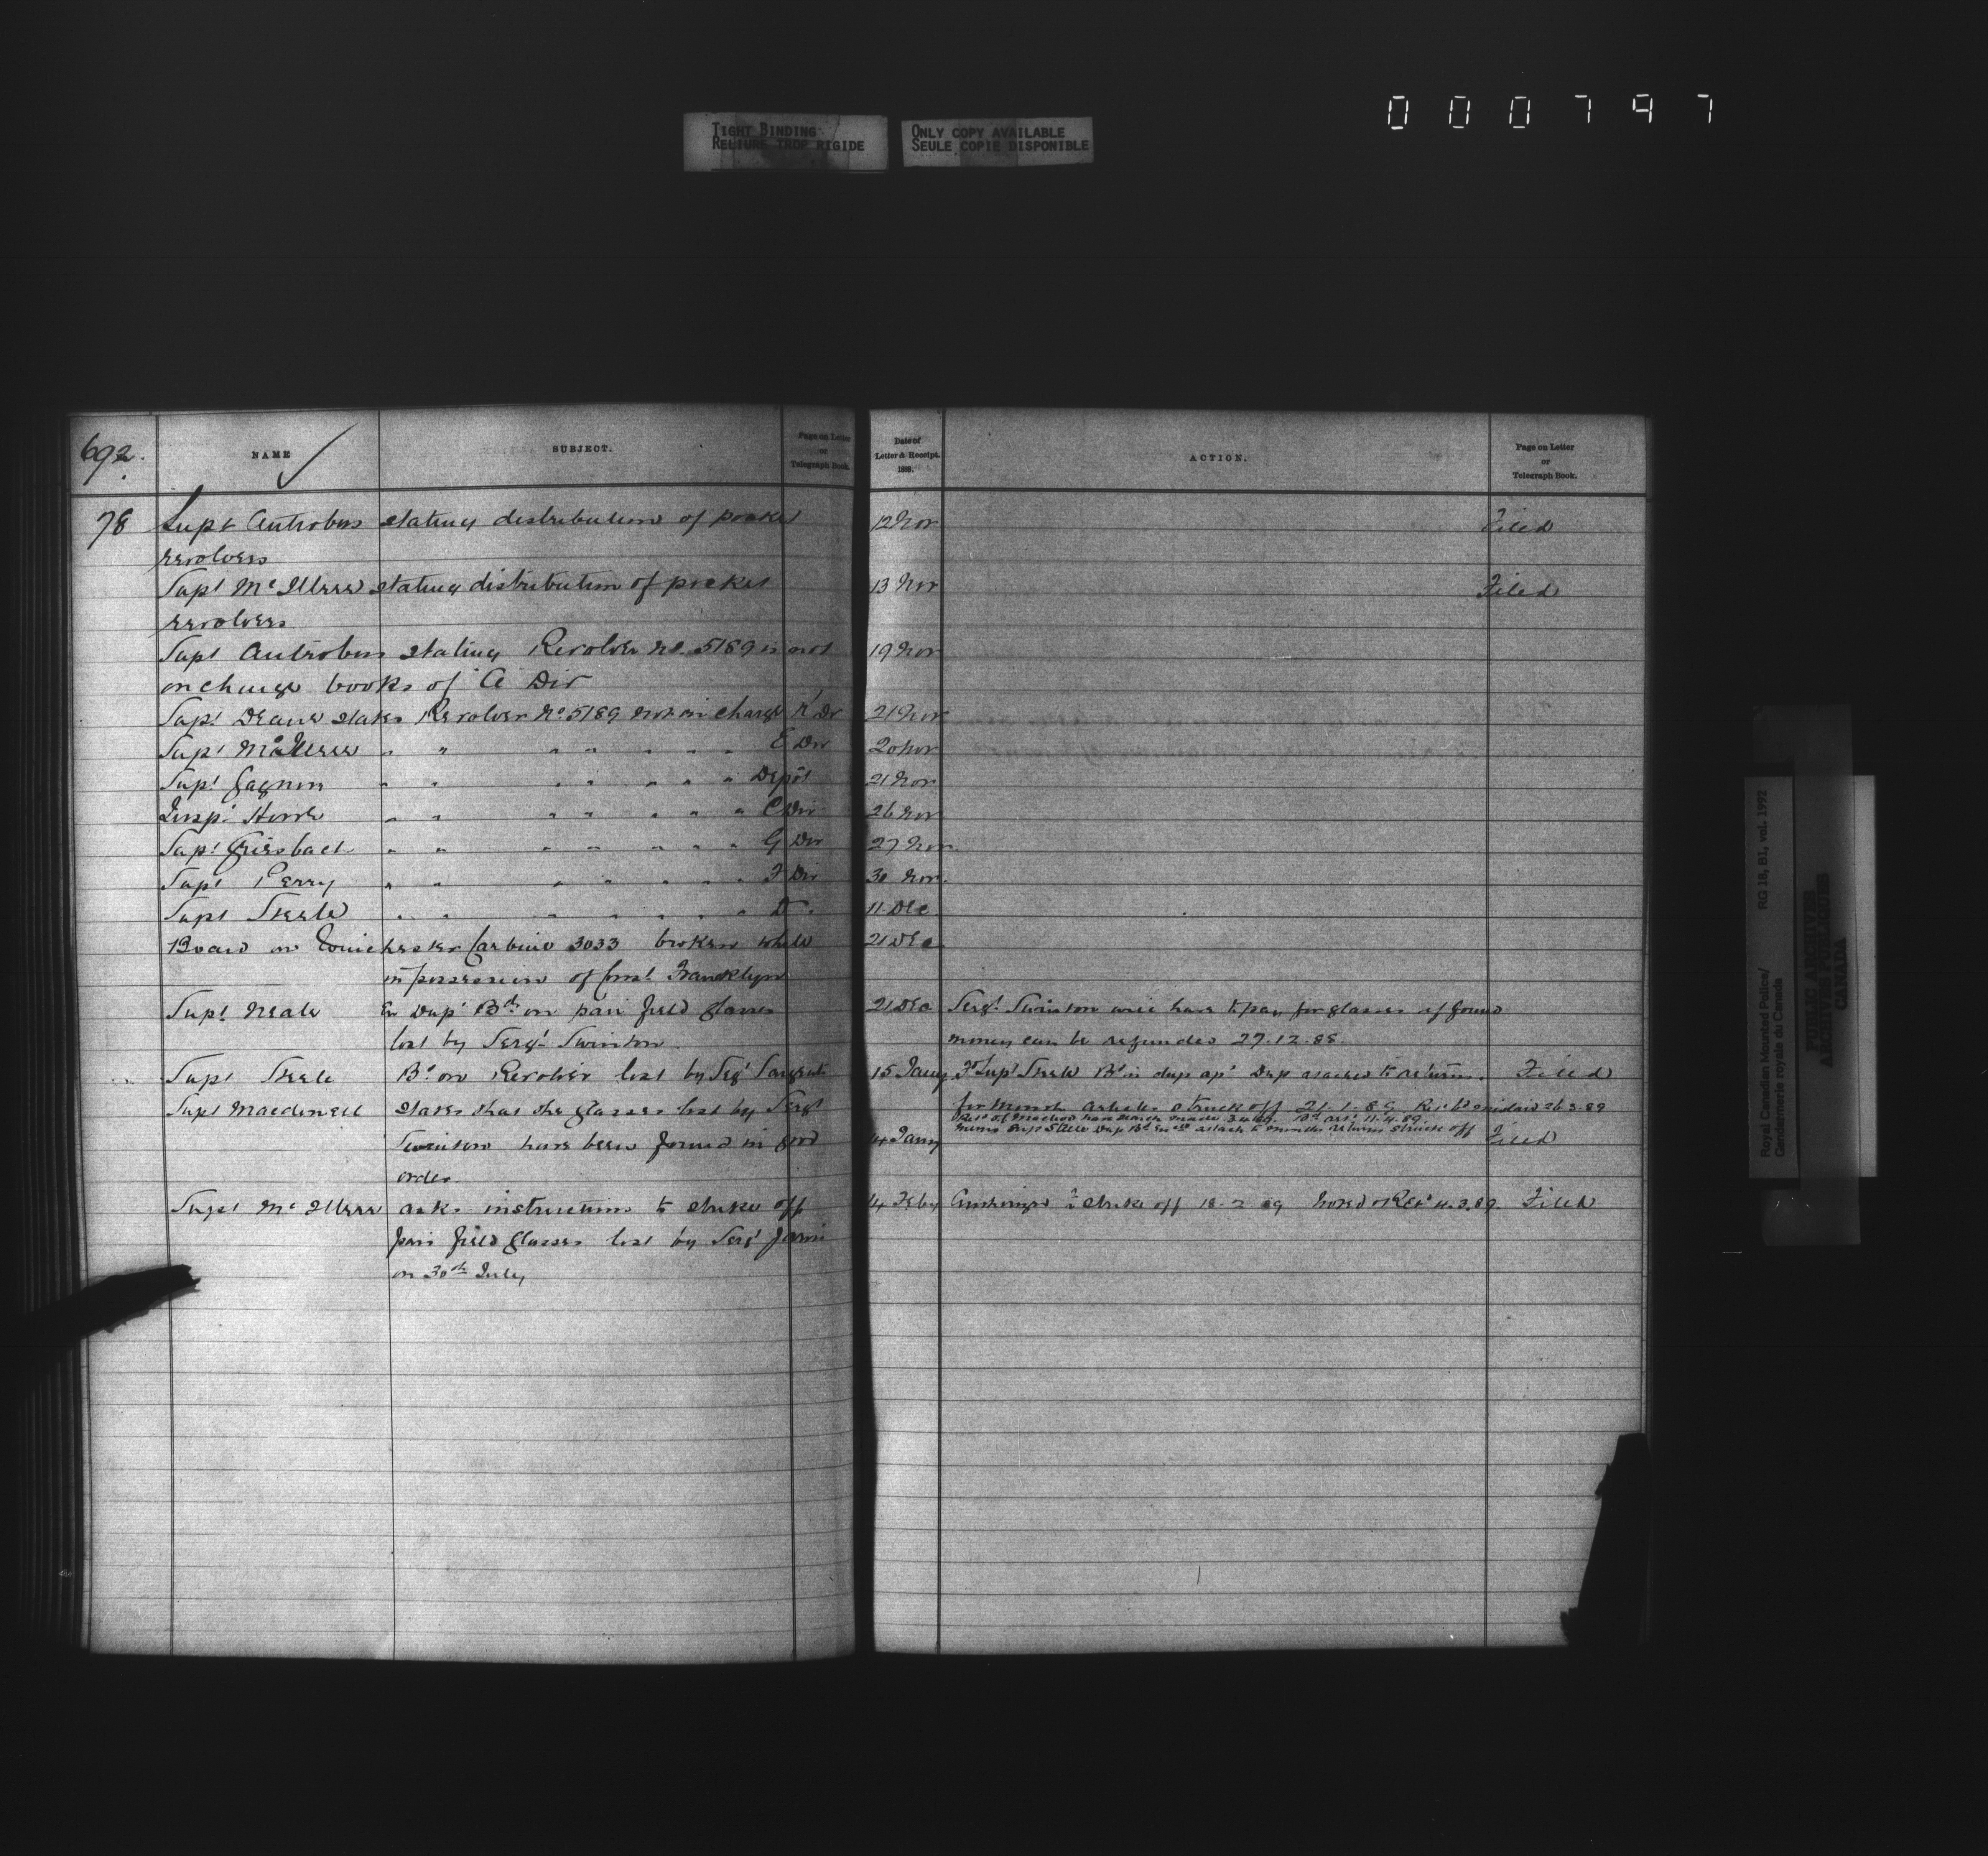 000797
TIGHT BINDING
RELIURE TROP RIGIDE
ONLY COPY AVAILABLE
SEULE COPIE DISPONIBLE
692.
NAME
SUBJECT.
Page on Letter
or
Telegraph Book.
Date of
Letter & Receipt.
1888.
ACTION.
Page on Letter
or
Telegraph Book.
78 Supt Antrobus stating distribution of pocket 12 Nov Filed
revolvers
Supt McIllree stating distribution of pocket 13 Nov Filed
revolvers
Supt Antrobus stating Revolver No. 5189 is not 19 Nov
on charge books of A Div
Supt Deane states Revolver No 5189 not on charge K Div 21 Nov
Supt McIllree " " " " " " " E Div 20 Nov
Supt Gagnon " " " " " " " Depôt 21 Nov
Insp. Howe " " " " " " " C Div 26 Nov
Supt Griesbach " " " " " " " G Div 27 Nov
Supt Perry " " " " " " " F Div 30 Nov
Supt Steele " " " " " " " D " 11 Dec
Board on Winchester Carbine 3033 broken while 21 Dec
in possession of Const Francklyn
Supt Neale En Dup Bd on pair field glasses 21 Dec Sergt Swinton will have to pay for glasses if found
lost by Sergt Swinton. money can be refunded 27.12.88.
Supt Steele Bd on Revolver lost by Sergt Sargent 15 Jany To Supt Steele Bd in dup apd Dup attached to returns. Filed
Supt Macdonell states that the glasses lost by Sergt for month articles struck off 21.1.89 26.3.89
made 11.4.89
Memo Supt Steele Dup Bd attach to months returns struck off
Swinton have been found in good 4 Jany Filed
order
Supt McIllree asks instructions to strike off 4 Feby Authority to strike off 18-2-89 Noted & Retd 4.3.89. Filed
pair field glasses lost by Sergt Jarvis
on 30th July
Royal Canadian Mounted Police/
Gendarmerie royale du Canada
RG 18, B1, vol. 1992
PUBLIC ARCHIVES
ARCHIVES PUBLIQUES
CANADA